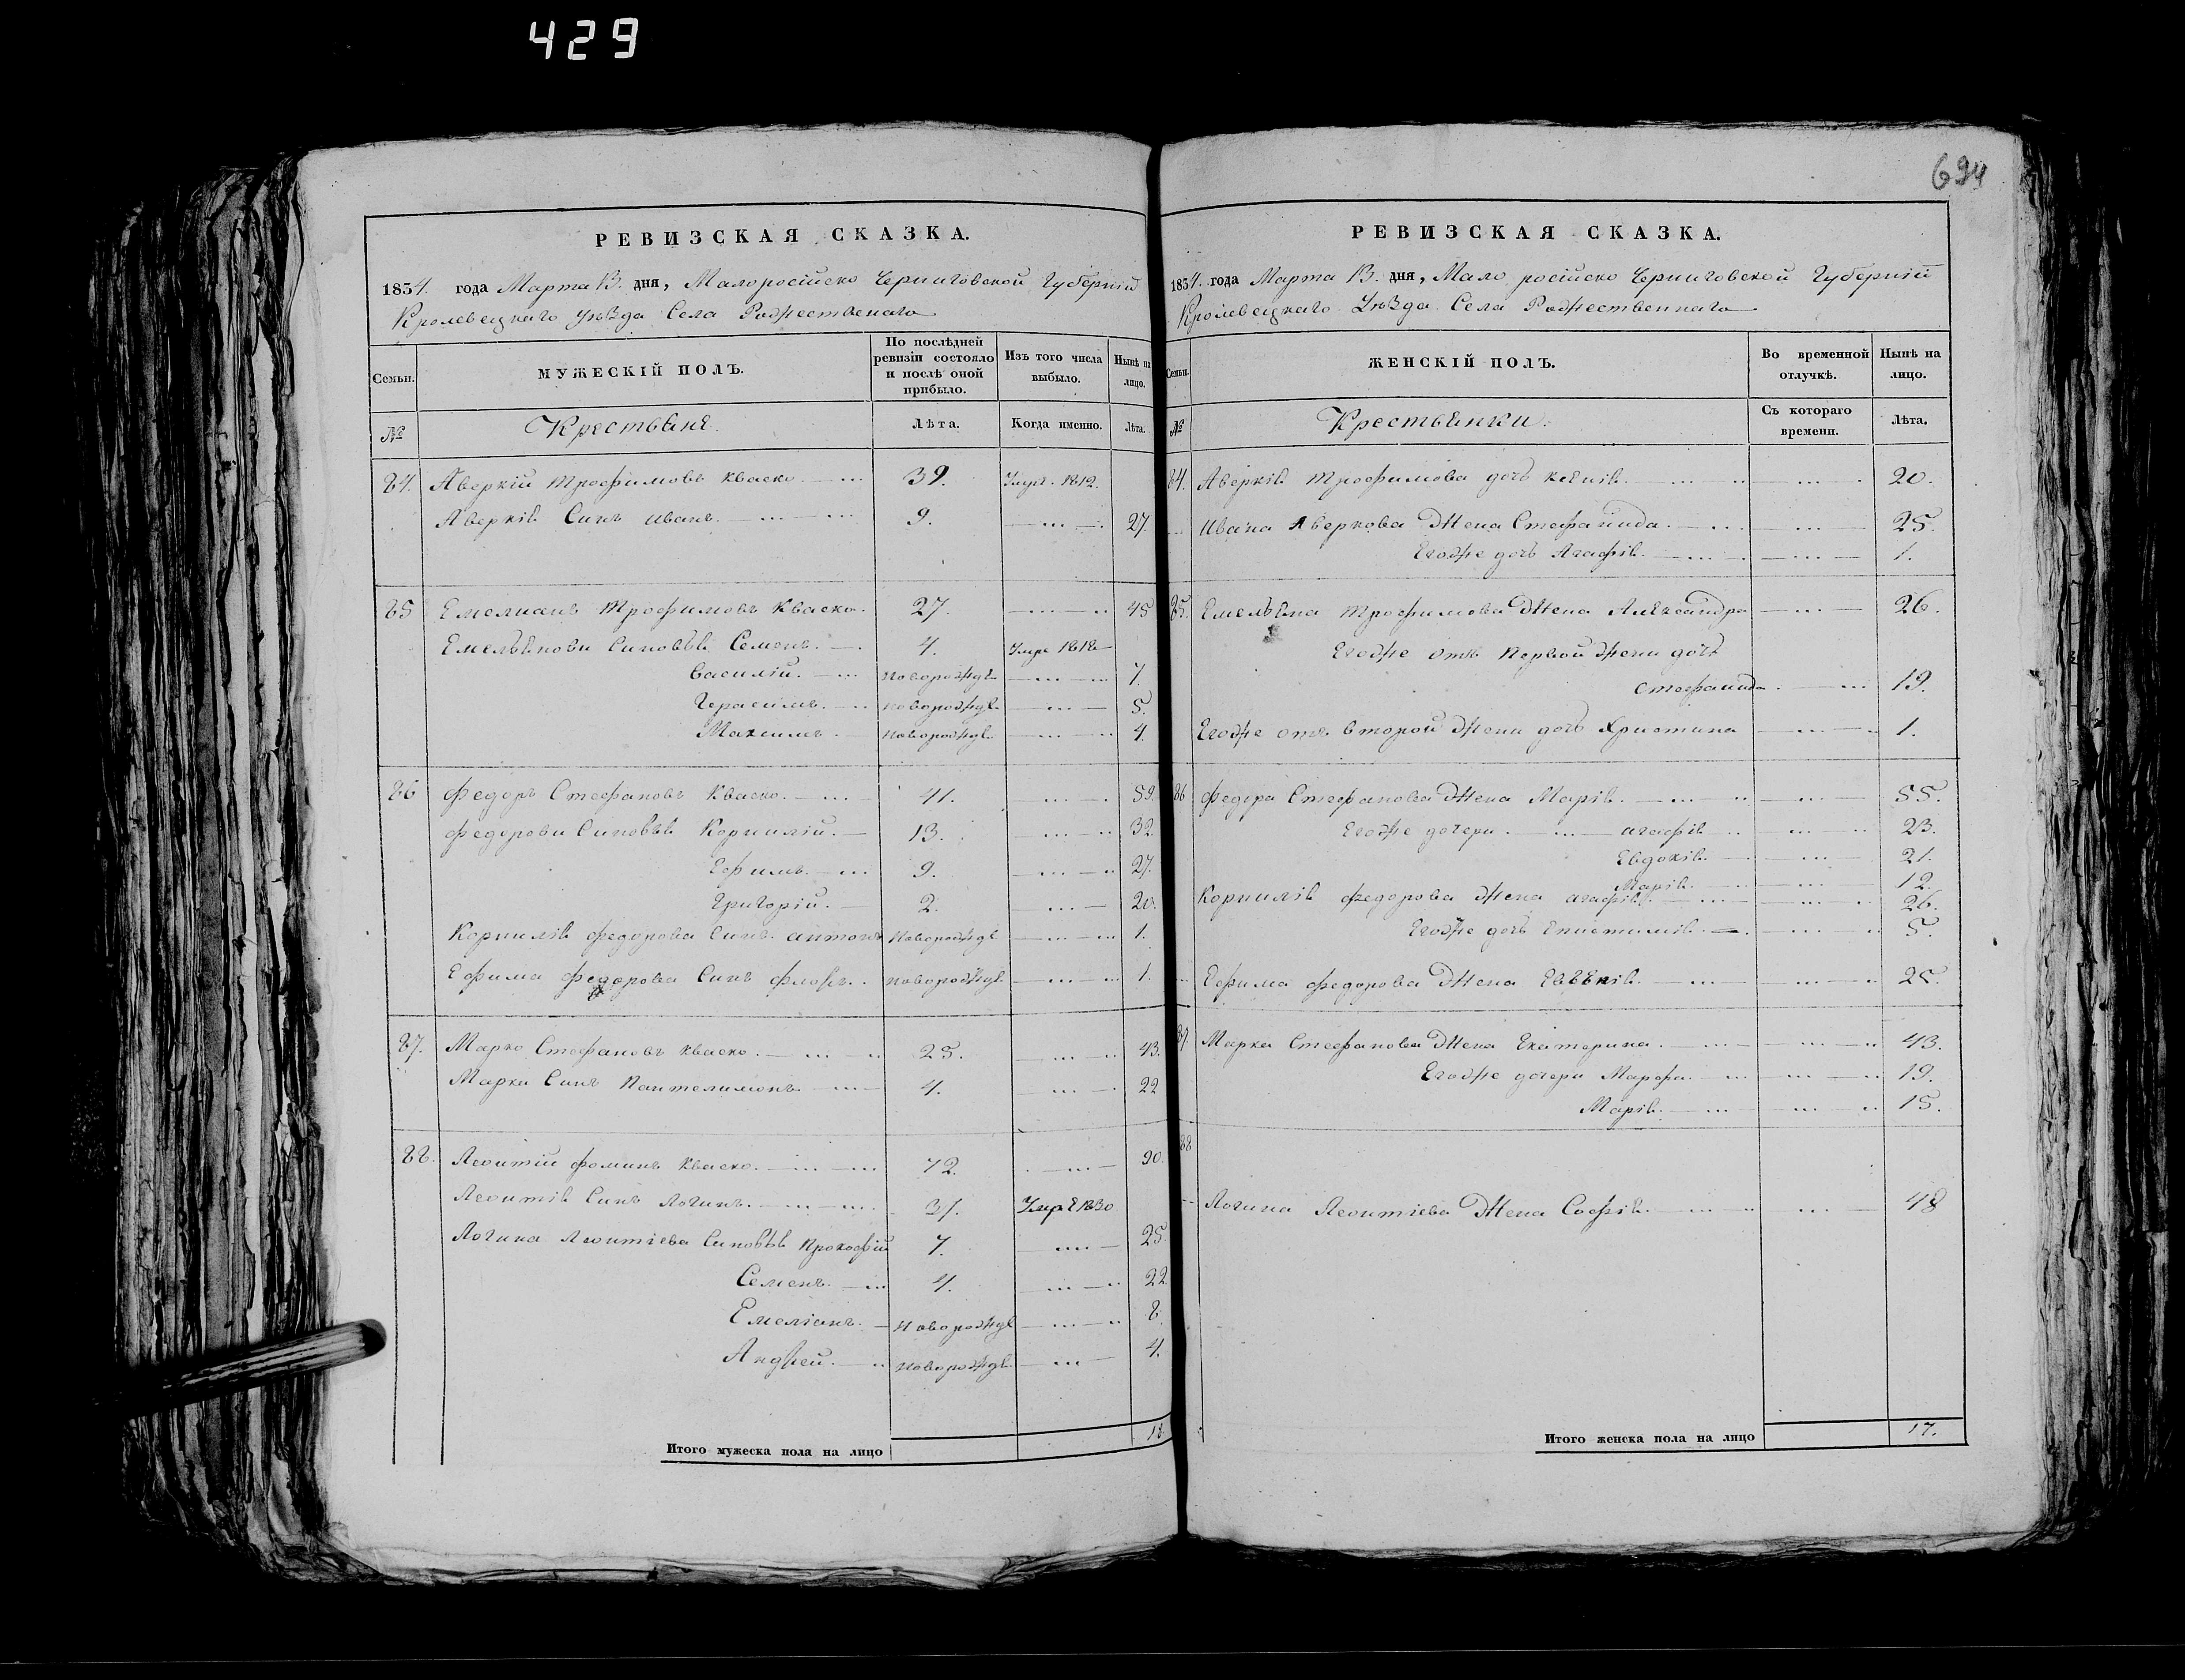 429
694
РЕВИЗСКАЯ СКАЗКА.
1834. года Марта 13. дня, Малоросійско Черниговской Губерніи
Кролевецкаго уѣзда Села Рождественаго
Семьи. МУЖЕСКІЙ ПОЛЪ. По послѣдней ревизіи состояло и послѣ оной прибыло. Изъ того числа выбыло. Нынѣ на лицо.
№ Крестьяне. Лѣта. Когда именно. Лѣта.
84. Аверкій Трофимовъ Кваско 39. Умре. 1818.
Аверкія Синъ Иванъ. 9. 27.
85 Емелианъ Трофимовъ Кваско. 27. 45
Емельянови Синовья Семенъ. 4. Умре 1818
Василій. новорождъ 7.
Герасимъ. новорождъ 5.
Максимъ. новорождъ 4.
86 Федоръ Стефановъ Кваско. 41. 59.
Федорови Синовья Корнилій. 13. 32.
Ефимъ. 9. 27.
Григорій. 2. 20.
Корнилія Федорова Синъ антонъ новорождъ 1.
Ефима Федорова Синъ Флоръ. новорождъ 1.
87. Марко Стефановъ Кваско. 25. 43.
Марка Синъ Пантелимонъ 4. 22
88. Леонтій Фоминъ Кваско. 72. 90.
Леонтія Синъ Логинъ. 31. Умре 1830
Логина Леонтіева Синовья Прокофій 7. 25.
Семенъ. 4. 22.
Емеліанъ. новорождъ 8.
Андрей. новорождъ 4.
Итого мужеска пола на лицо 18.
РЕВИЗСКАЯ СКАЗКА.
1834. года Марта 13. дня, Мало російско Черниговской Губерніи
Кролевецкаго Уѣзда Села Рождественнаго
Семьи. ЖЕНСКІЙ ПОЛЪ. Во временной отлучкѣ. Нынѣ на лицо.
№ Крестьянки. Съ котораго времени. Лѣта.
84. Аверкія Трофимова дочъ Ксѣнія. 20.
Ивана Аверкова Жена Стефанида. 25.
Егоже дочъ Агафія. 1.
85. Емельяна Трофимова Жена Александра 26.
Егоже отъ первой жени дочъ
Стефанида. 19.
Егоже отъ второй Жени дочъ Христина 1.
86 Федора Стефанова Жена Марія. 55.
Егоже дочери. агафія 23.
Евдокія. 21.
Марія. 12.
Корнилія Федорова Жена агафія. 26.
Егоже дочъ Епистимія. 5.
Ефима Федорова Жена Евгенія. 25.
87 Марка Стефанова Жена Екатерина. 43.
Егоже дочери Марфа. 19.
Марія. 15.
88
Логина Леонтіева Жена Софія. 48
Итого женска пола на лицо 17.